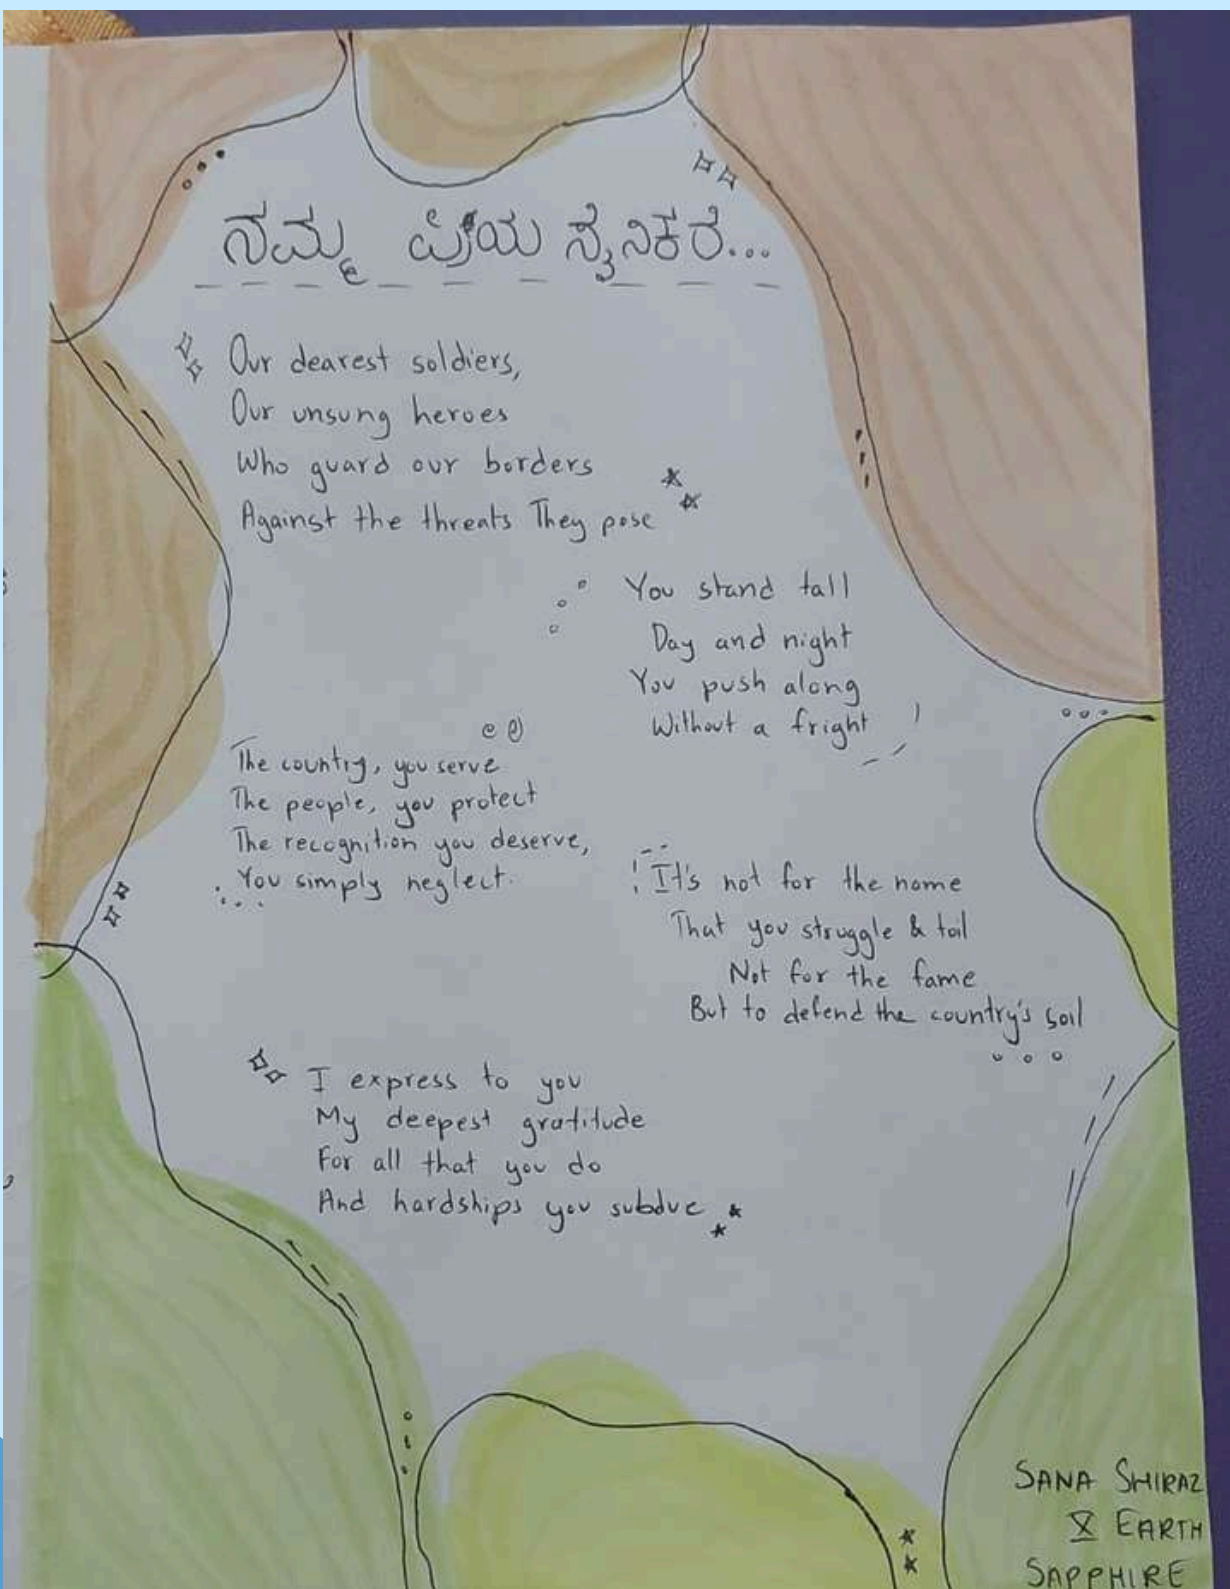 ನಮ್ಮ ಪ್ರಿಯ ಸೈನಿಕರೆ...
Our dearest soldiers,
Our unsung heroes
Who guard our borders
Against the threats They pose
You stand tall
Day and night
You push along
Without a fright
The country, you serve
The people, you protect
The recognition you deserve,
You simply neglect.
It's not for the name
That you struggle & toil
Not for the fame
But to defend the country's soil
I express to you
My deepest gratitude
For all that you do
And hardships you subdue
SANA SHIRAZ
X EARTH
SAPPHIRE